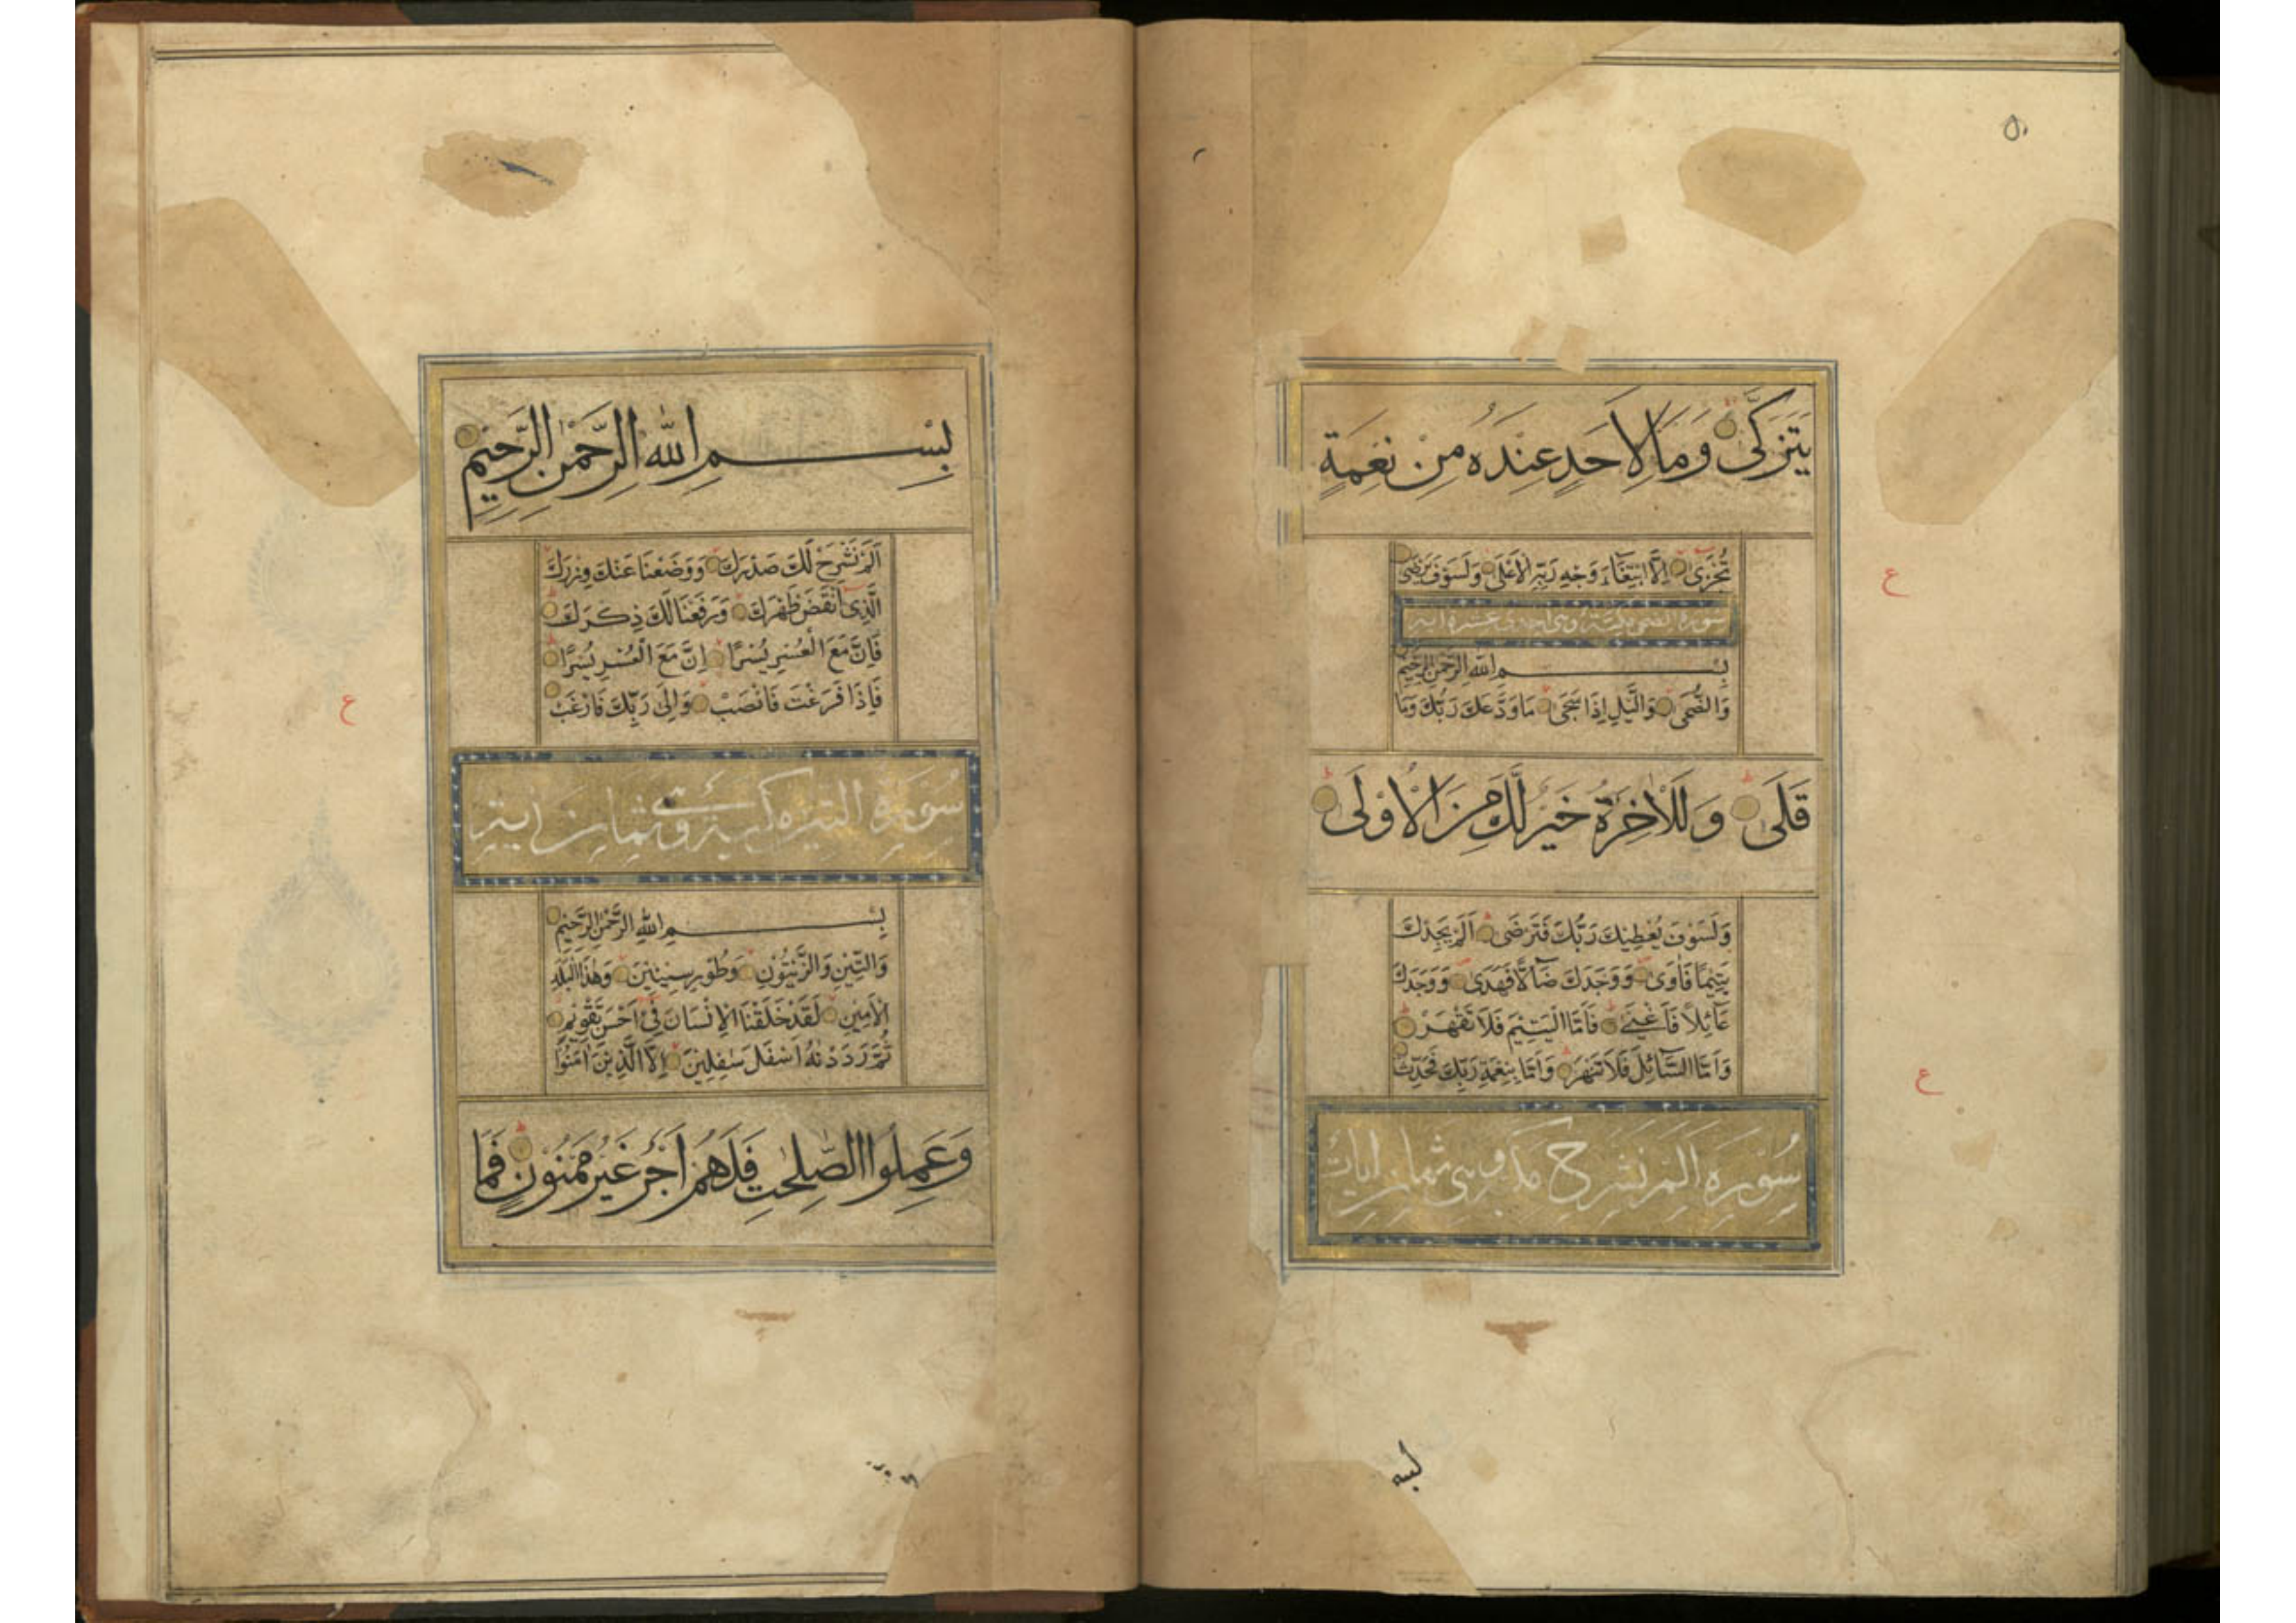 ٥٠
يَتَزَكَّىٰ وَمَا لِاَحَدٍ عِنْدَهُ مِنْ نِعْمَةٍ
تُجْزٰى اِلَّا ابْتِغَآءَ وَجْهِ رَبِّهِ الْاَعْلٰى وَلَسَوْفَ يَرْضٰى
سورة الضحى مكية وهى احدى عشرة اية
بِسْمِ اللّٰهِ الرَّحْمٰنِ الرَّحِيْمِ
وَالضُّحٰى وَالَّيْلِ اِذَا سَجٰى مَا وَدَّعَكَ رَبُّكَ وَمَا
قَلٰى وَلَلْاٰخِرَةُ خَيْرٌ لَّكَ مِنَ الْاُوْلٰى
وَلَسَوْفَ يُعْطِيْكَ رَبُّكَ فَتَرْضٰى اَلَمْ يَجِدْكَ
يَتِيْمًا فَاٰوٰى وَوَجَدَكَ ضَآلًّا فَهَدٰى وَوَجَدَكَ
عَآئِلًا فَاَغْنٰى فَاَمَّا الْيَتِيْمَ فَلَا تَقْهَرْ
وَاَمَّا السَّآئِلَ فَلَا تَنْهَرْ وَاَمَّا بِنِعْمَةِ رَبِّكَ فَحَدِّثْ
سُوْرَةِ اَلَمْ نَشْرَحْ وهى ثمان ايات
ع
ع
بِسْمِ اللّٰهِ الرَّحْمٰنِ الرَّحِيْمِ
اَلَمْ نَشْرَحْ لَكَ صَدْرَكَ وَوَضَعْنَا عَنْكَ وِزْرَكَ
الَّذِىْ اَنْقَضَ ظَهْرَكَ وَرَفَعْنَا لَكَ ذِكْرَكَ
فَاِنَّ مَعَ الْعُسْرِ يُسْرًا اِنَّ مَعَ الْعُسْرِ يُسْرًا
فَاِذَا فَرَغْتَ فَانْصَبْ وَاِلٰى رَبِّكَ فَارْغَبْ
سُوْرَةِ التين مكية وهى ثمان اية
بِسْمِ اللّٰهِ الرَّحْمٰنِ الرَّحِيْمِ
وَالتِّيْنِ وَالزَّيْتُوْنِ وَطُوْرِ سِيْنِيْنَ وَهٰذَا الْبَلَدِ
الْاَمِيْنِ لَقَدْ خَلَقْنَا الْاِنْسَانَ فِىْ اَحْسَنِ تَقْوِيْمٍ
ثُمَّ رَدَدْنٰهُ اَسْفَلَ سٰفِلِيْنَ اِلَّا الَّذِيْنَ اٰمَنُوْا
وَعَمِلُوا الصّٰلِحٰتِ فَلَهُمْ اَجْرٌ غَيْرُ مَمْنُوْنٍ فَمَا
ع